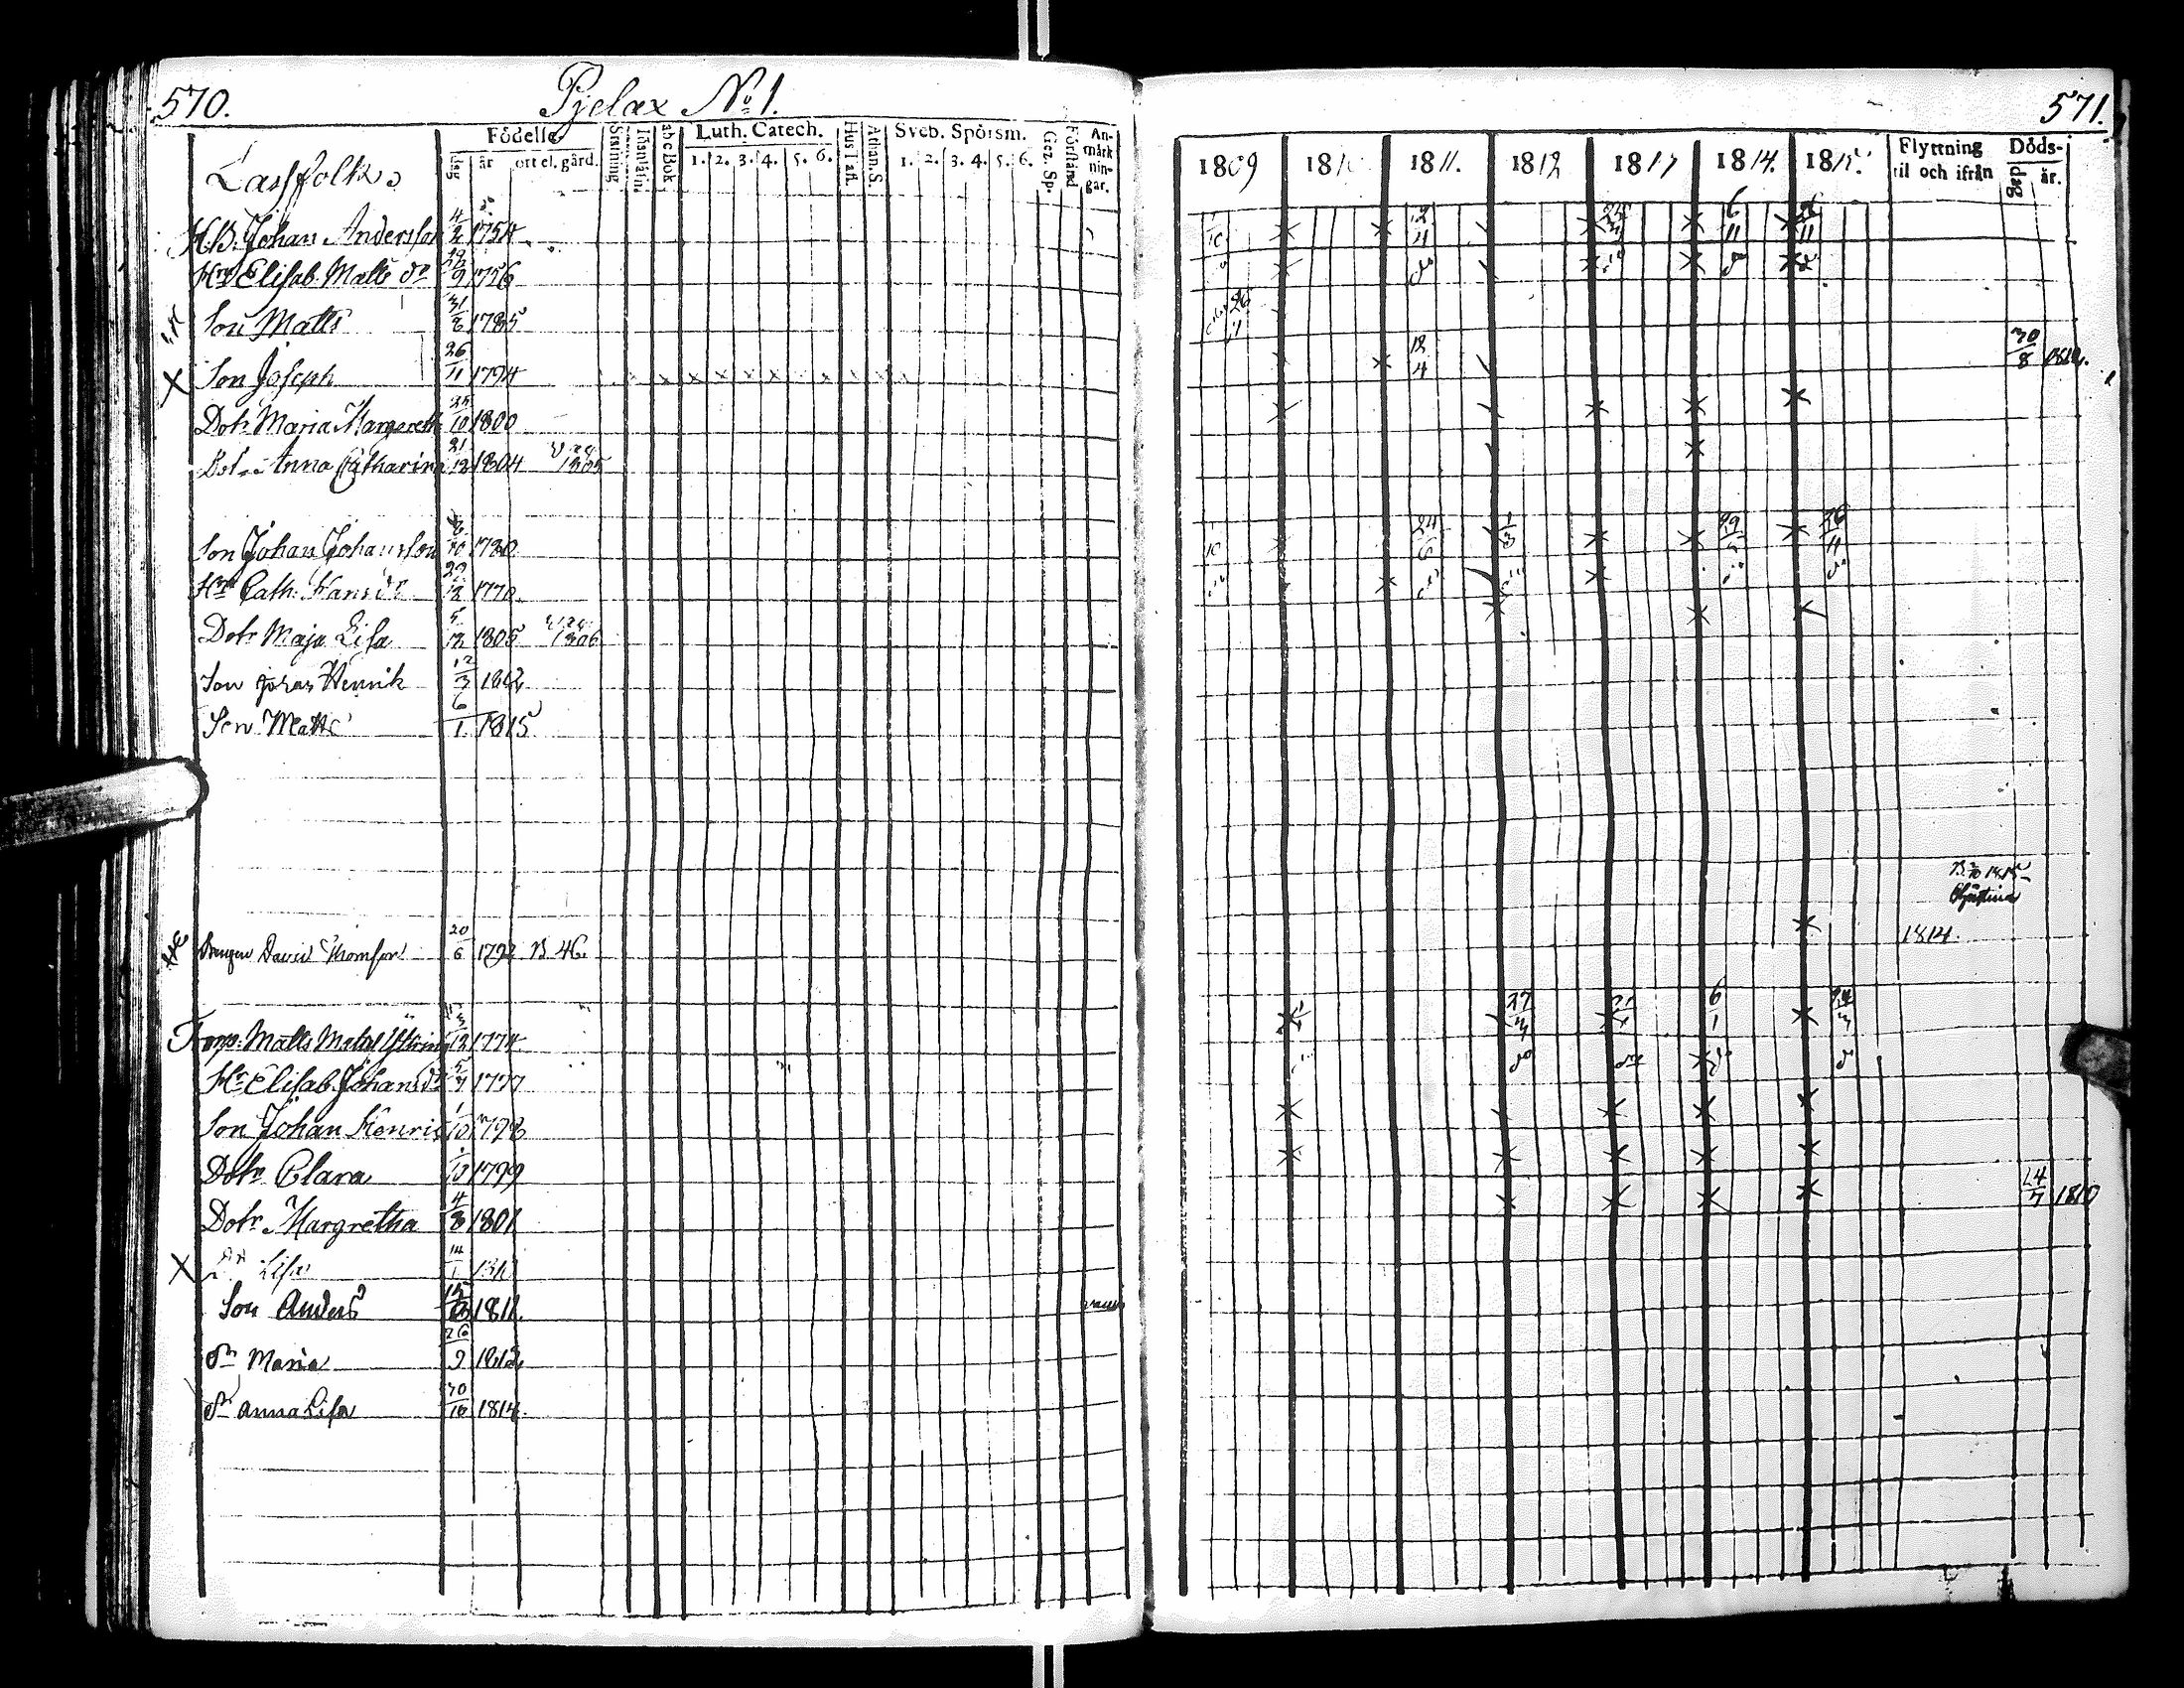 570. Pjelax No 1.
Födelse
dag år ort el. gård.
ab c Bok
Luth. Catech.
1. 2. 3. 4. 5. 6.
Hus Tafl.
Athan. S.
Sveb. Spörsm.
1. 2. 3. 4. 5. 6.
Gez. Sp.
Förstånd
An-
märk
nin-
gar.
Lassfolks
H.B. Johan Andersson 4/2 1754
Hru Elisab. Matts dr 9 1756
Son Matts 31/8 1785
Son Joseph 26/11 1794
Dotr Maria Margareth 25/10 1800
Dotr Anna Catharina 21/12 1804 1805
Son Johan Johansson 10 1780
Hru Cath. Hansdr 29/12 1770
Dotr Maja Lisa 5/12 1805 1806
Son Johan Henrik 12/3 1812
Son Matts 6/1 1815
Drengen David Thomson 20/6 1792 B 46.
Torp. Matts Mats 12 1774
Hr Elisab. Johansdr 5/7 1777
Son Johan Henric 1/10 1798
Dotr Clara 10 1799
Dotr Margretha 4/8 1801
Lisa 14/1
Son Anders 1811
Dr Maria 26/9 1812
Dr Anna Lisa 30/10 1814
571.
1809 1810 1811. 1812 1813 1814. 1815.
Flyttning
til och ifrån
Döds-
dag år.
12/11 6/11 26/11
26
18/4 30/8 1810.
24/6 1/3 29 26/11
1814.
27/3 21 6/1 24/3
24/7 1810